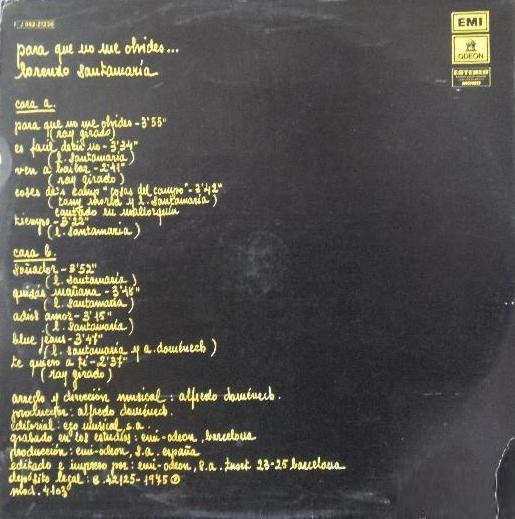 062-21236
para que no me olvides...
lorenzo santamaría
EMI
ODEON
ESTEREO
cara a.
para que no me olvides - 3'55"
(ray girado)
es facil decir no - 3'34"
(l. santamaría)
ven a bailar - 2'41"
(ray girado)
coses de's camp "cosas del campo" - 3'42"
(tany world y l. santamaría)
cantado en mallorquín
tiempo - 3'22"
(l. santamaria)
cara b.
soñador - 3'52"
(l. santamaría)
quizás mañana - 3'48"
(l. santamaría)
adiós amor - 3'15"
(l. santamaría)
blue jeans - 3'47"
(l. santamaría y a. doménech)
te quiero a ti - 2'37"
(ray girado)
arreglo y dirección musical: alfredo doménech.
productor: alfredo doménech.
editorial: ego musical, s.a.
grabado en los estudios: emi-odeon, barcelona
producción: emi-odeon, s.a. españa
editado e impreso por: emi-odeon, s.a. tuset 23-25 barcelona
depósito legal: B. 42125-1975 ℗
mod. 4103